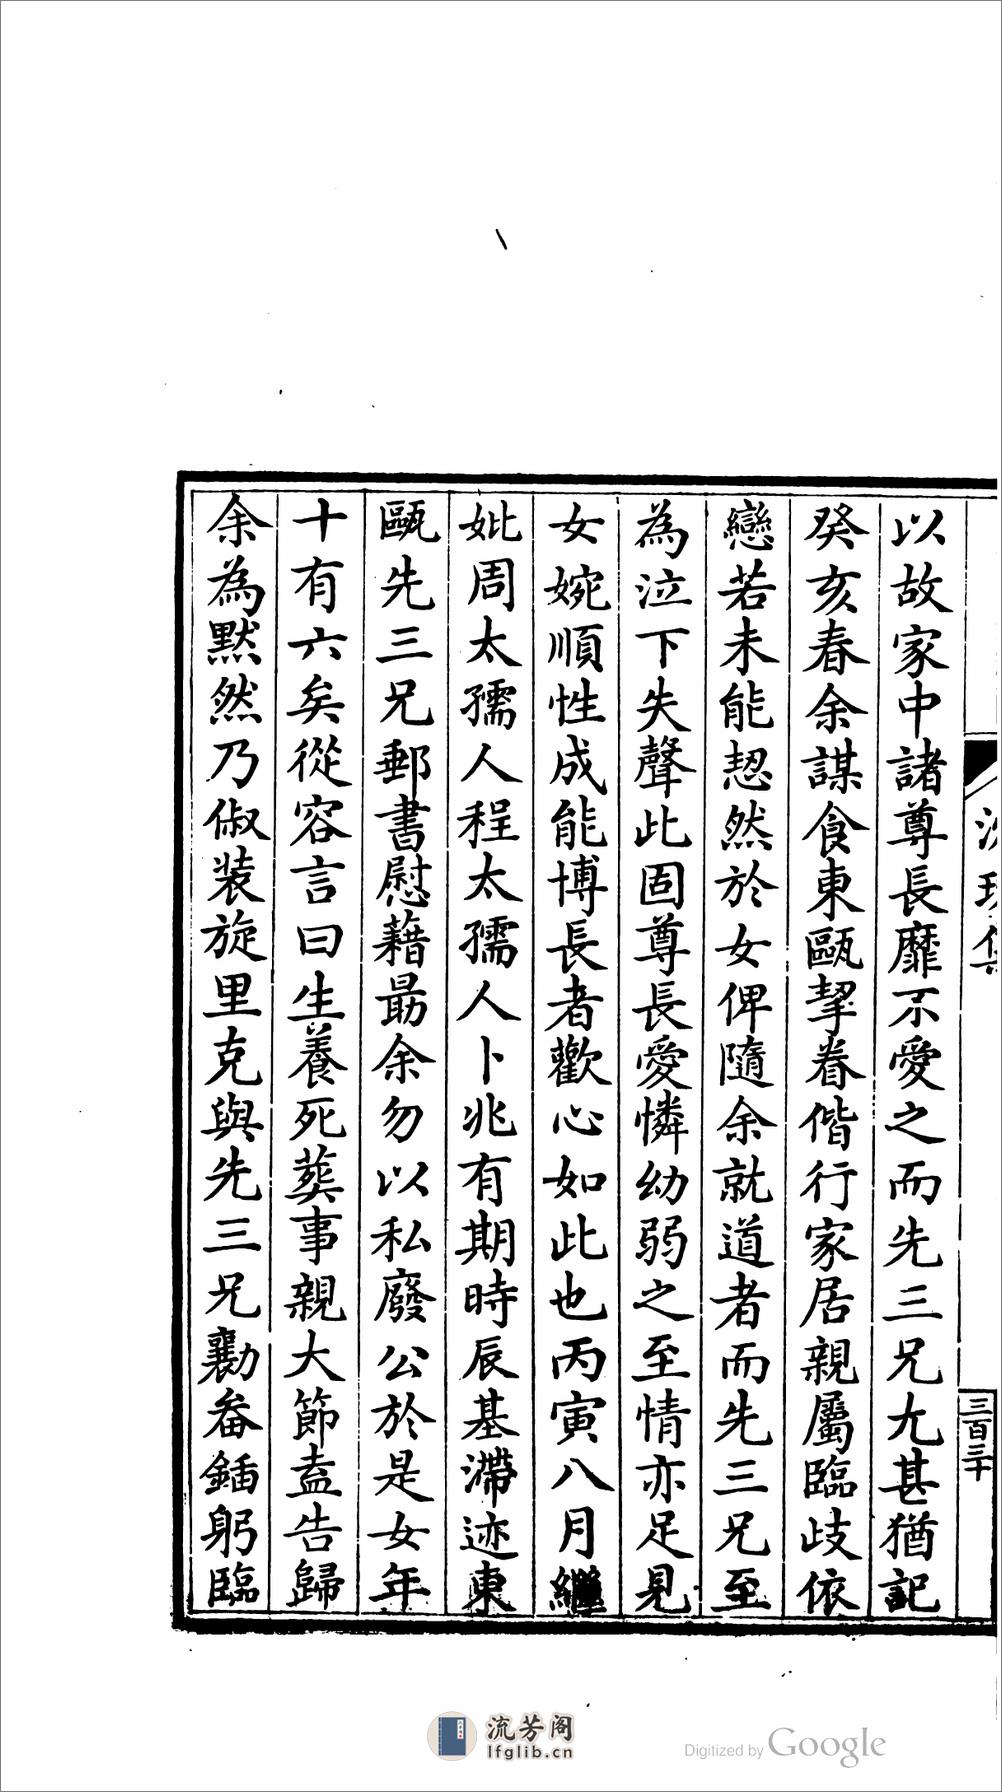 三百三十
以故家中諸尊長靡不愛之而先三兄尤甚猶記
癸亥春余謀食東甌挈眷偕行家居親屬臨歧依
戀若未能恝然於女俾隨余就道者而先三兄至
為泣下失聲此固尊長愛憐幼弱之至情亦足見
女婉順性成能博長者歡心如此也丙寅八月繼
妣周太孺人程太孺人卜兆有期時辰基滯迹東
甌先三兄郵書慰藉勗余勿以私廢公於是女年
十有六矣從容言曰生養死葬事親大節盍告歸
余為默然乃俶装旋里克與先三兄勷畚鍤躬臨
流芳阁
lfglib.cn
Digitized by Google